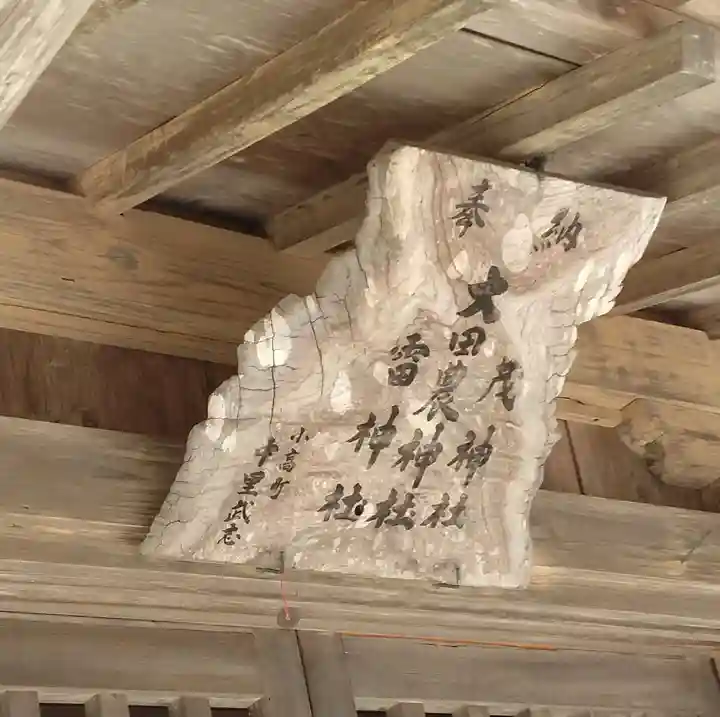 奉納
茂神社
大田農神社
雷神社
小高町
中里武志